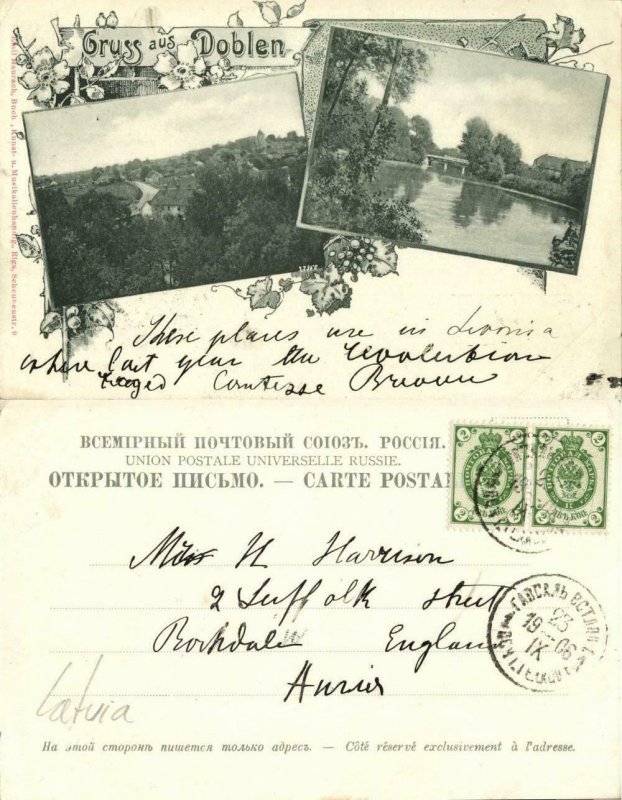 Gruss aus Doblen
Buch-, Kunst- u. Musikalienhandlg., Riga, Scheunenstr. 9
These places are in Livonia
where last year the Revolution
raged Comtesse
ВСЕМІРНЫЙ ПОЧТОВЫЙ СОЮЗЪ. РОССІЯ.
UNION POSTALE UNIVERSELLE RUSSIE.
ОТКРЫТОЕ ПИСЬМО. — CARTE POSTAL
2 2 2 2
Miss H Harrison
2 Suffolk street
Rochdale England
ГАПСАЛЬ ЭСТЛЯН
23
19 IX 06
Latvia
На этой сторонѣ пишется только адресъ. — Côté réservé exclusivement à l'adresse.